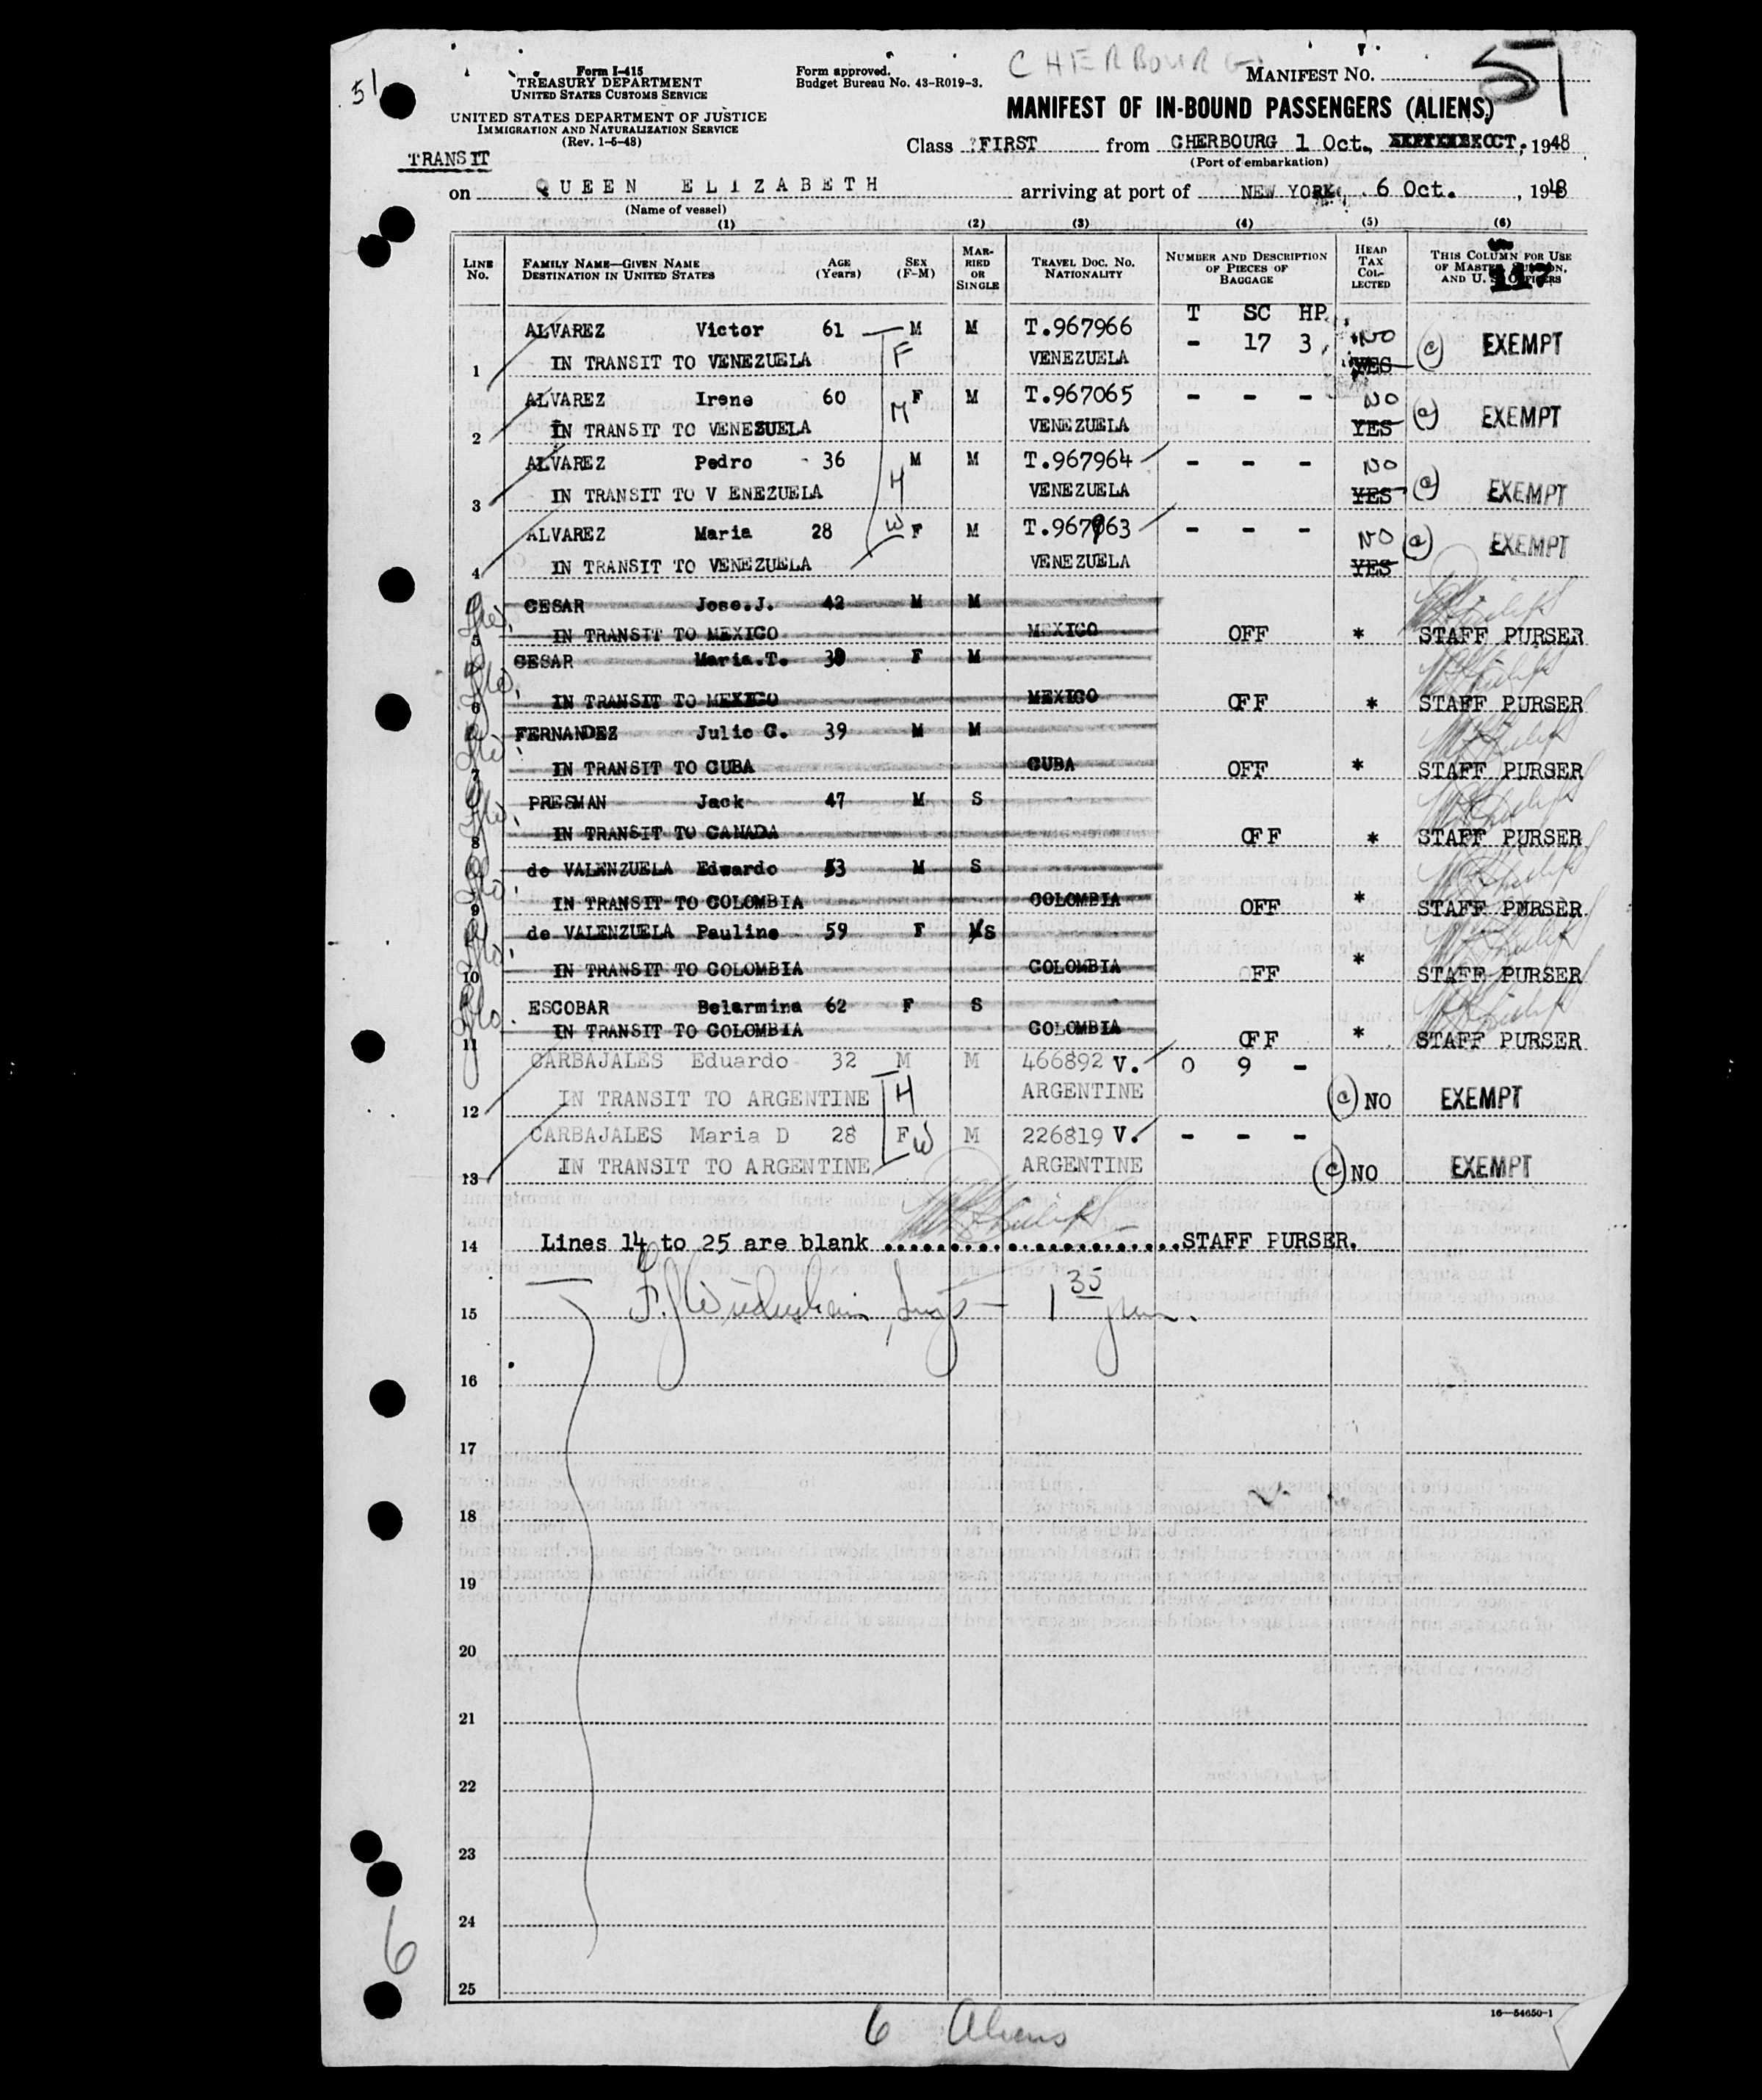 51
CHERBOURG
Form I-415
TREASURY DEPARTMENT
UNITED STATES CUSTOMS SERVICE
UNITED STATES DEPARTMENT OF JUSTICE
IMMIGRATION AND NATURALIZATION SERVICE
(Rev. 1-6-48)
Form approved.
Budget Bureau No. 43-R019-3.
MANIFEST NO. 51
MANIFEST OF IN-BOUND PASSENGERS (ALIENS)
TRANSIT
Class FIRST from CHERBOURG 1 Oct., OCT. 1948
(Port of embarkation)
on QUEEN ELIZABETH arriving at port of NEW YORK, 6 Oct. , 1948
(Name of vessel)
(1) (2) (3) (4) (5) (6)
LINE NO. FAMILY NAME—GIVEN NAME DESTINATION IN UNITED STATES AGE (Years) SEX (F-M) MARRIED OR SINGLE TRAVEL DOC. NO. NATIONALITY NUMBER AND DESCRIPTION OF PIECES OF BAGGAGE HEAD TAX COLLECTED THIS COLUMN FOR USE OF MASTER, SURGEON, AND U. S. OFFICERS
T SC HP
ALVAREZ Victor 61 M M T.967966 - 17 3 NO
1 IN TRANSIT TO VENEZUELA F VENEZUELA YES (c) EXEMPT
ALVAREZ Irene 60 F M T.967065 - - - NO
2 IN TRANSIT TO VENESUELA M VENEZUELA YES (c) EXEMPT
ALVAREZ Pedro - 36 M M T.967964 - - - NO
3 IN TRANSIT TO V ENEZUELA H VENEZUELA YES (c) EXEMPT
ALVAREZ Maria 28 W F M T.967963 - - - NO (c) EXEMPT
4 IN TRANSIT TO VENEZUELA VENEZUELA YES
CESAR Jose.J. 42 M M
5 IN TRANSIT TO MEXICO MEXICO OFF * STAFF PURSER
CESAR Maria.T. 30 F M
6 IN TRANSIT TO MEXICO MEXICO OFF * STAFF PURSER
FERNANDEZ Julio G. 39 M M
7 IN TRANSIT TO CUBA CUBA OFF * STAFF PURSER
PRESMAN Jack 47 M S
8 IN TRANSIT TO CANADA OFF * STAFF PURSER
de VALENZUELA Eduardo 53 M S
9 IN TRANSIT TO COLOMBIA COLOMBIA OFF * STAFF PURSER
de VALENZUELA Pauline 59 F MS
10 IN TRANSIT TO COLOMBIA COLOMBIA OFF * STAFF PURSER
ESCOBAR Belarmina 62 F S
11 IN TRANSIT TO COLOMBIA COLOMBIA OFF * STAFF PURSER
CARBAJALES Eduardo 32 M M 466892 V. 0 9 -
12 IN TRANSIT TO ARGENTINE H ARGENTINE (c) NO EXEMPT
CARBAJALES Maria D 28 F W M 226819 V. - - -
13 IN TRANSIT TO ARGENTINE ARGENTINE (c) NO EXEMPT
14 Lines 14 to 25 are blank ........................STAFF PURSER.
15 1 35
16
17
18
19
20
21
22
23
24
25
6
16—54650-1
6 Aliens